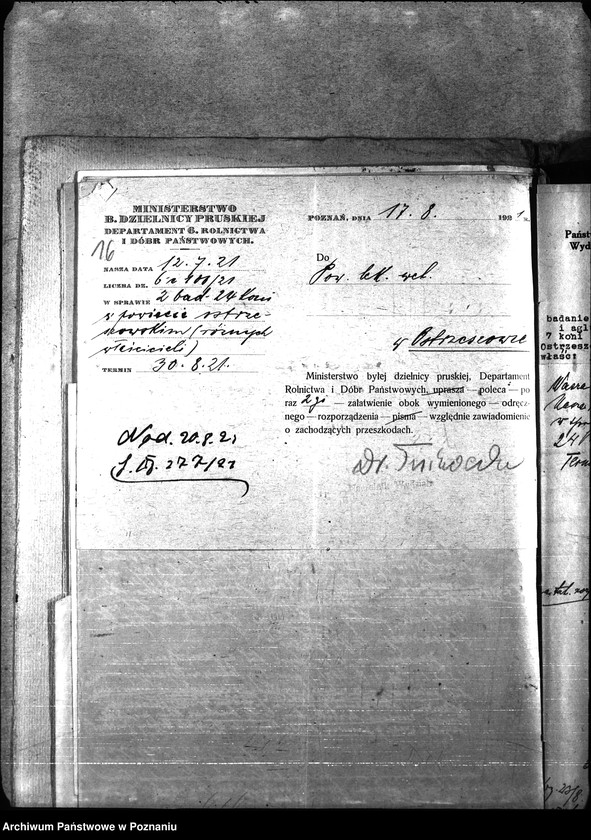 MINISTERSTWO
B. DZIELNICY PRUSKIEJ
DEPARTAMENT 6. ROLNICTWA
I DÓBR PAŃSTWOWYCH.
16
NASZA DATA 12.7.21
LICZBA DZ.
W SPRAWIE 2 bad. 24 koni
w powiecie ostrze-
szowskim (różnych
właścicieli)
TERMIN 30.8.21.
Nad. 20.8.21
277/21
POZNAŃ, DNIA 17.8. 1921 R.
Do
Pow. lek. wet.
w Ostrzeszowie
Ministerstwo byłej dzielnicy pruskiej, Departament
Rolnictwa i Dóbr Państwowych, uprasza — poleca — po
raz 2gi — załatwienie obok wymienionego — odręcz-
nego — rozporządzenia — pisma — względnie zawiadomienie
o zachodzących przeszkodach.
Dr.
Państ
Wyd
badanie
i agl
7 koni
Ostrzesz
właśc:
Archiwum Państwowe w Poznaniu